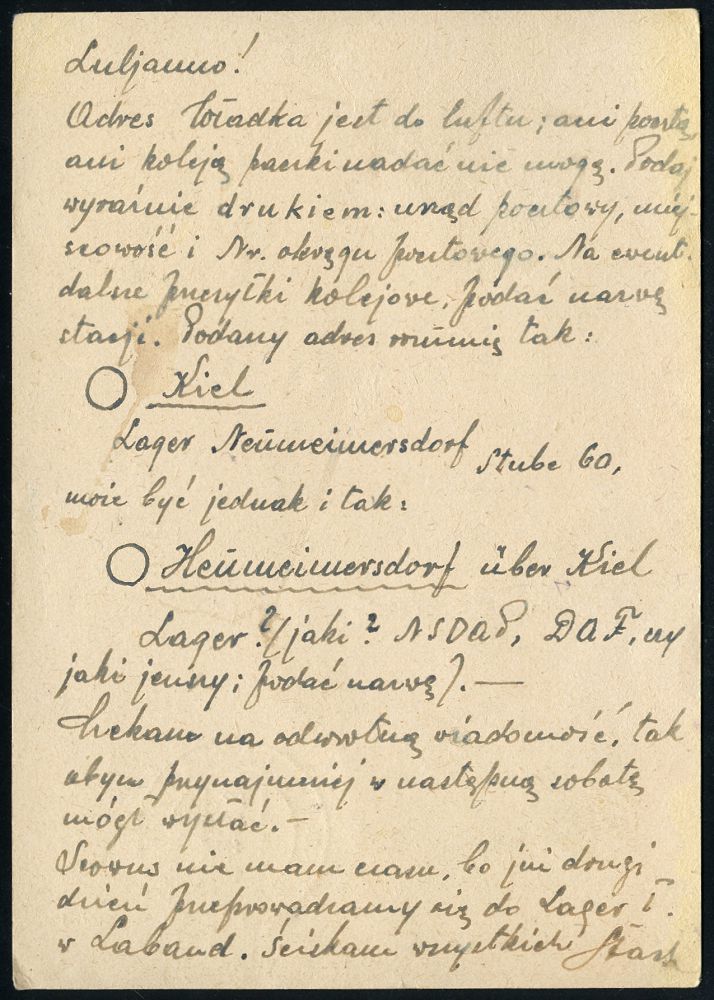 Luljanno!
Adres Władka jest do luftu; ani pocztą,
ani koleją paczki nadać nie mogę. Podaj
wyraźnie drukiem: urząd pocztowy, miej-
scowość i Nr. okręgu pocztowego. Na ewent.
dalsze przesyłki kolejowe, podać nazwę
stacji. Podany adres rozumię tak:
Kiel
Lager Neümeimersdorf Stube 60,
może być jednak i tak:
Heümeimersdorf über Kiel
Lager? (jaki? NSDAP, DAF, czy
jaki jenszy; podać nazwę). —
Czekam na odwrotną wiadomość, tak
abym przynajmniej w następną sobotę
mógł wysłać. —
Scowus nie mam czasu, bo już drugi
dzień przeprowadzamy się do Lager I.
w Laband. Ściskam wszystkich Stach